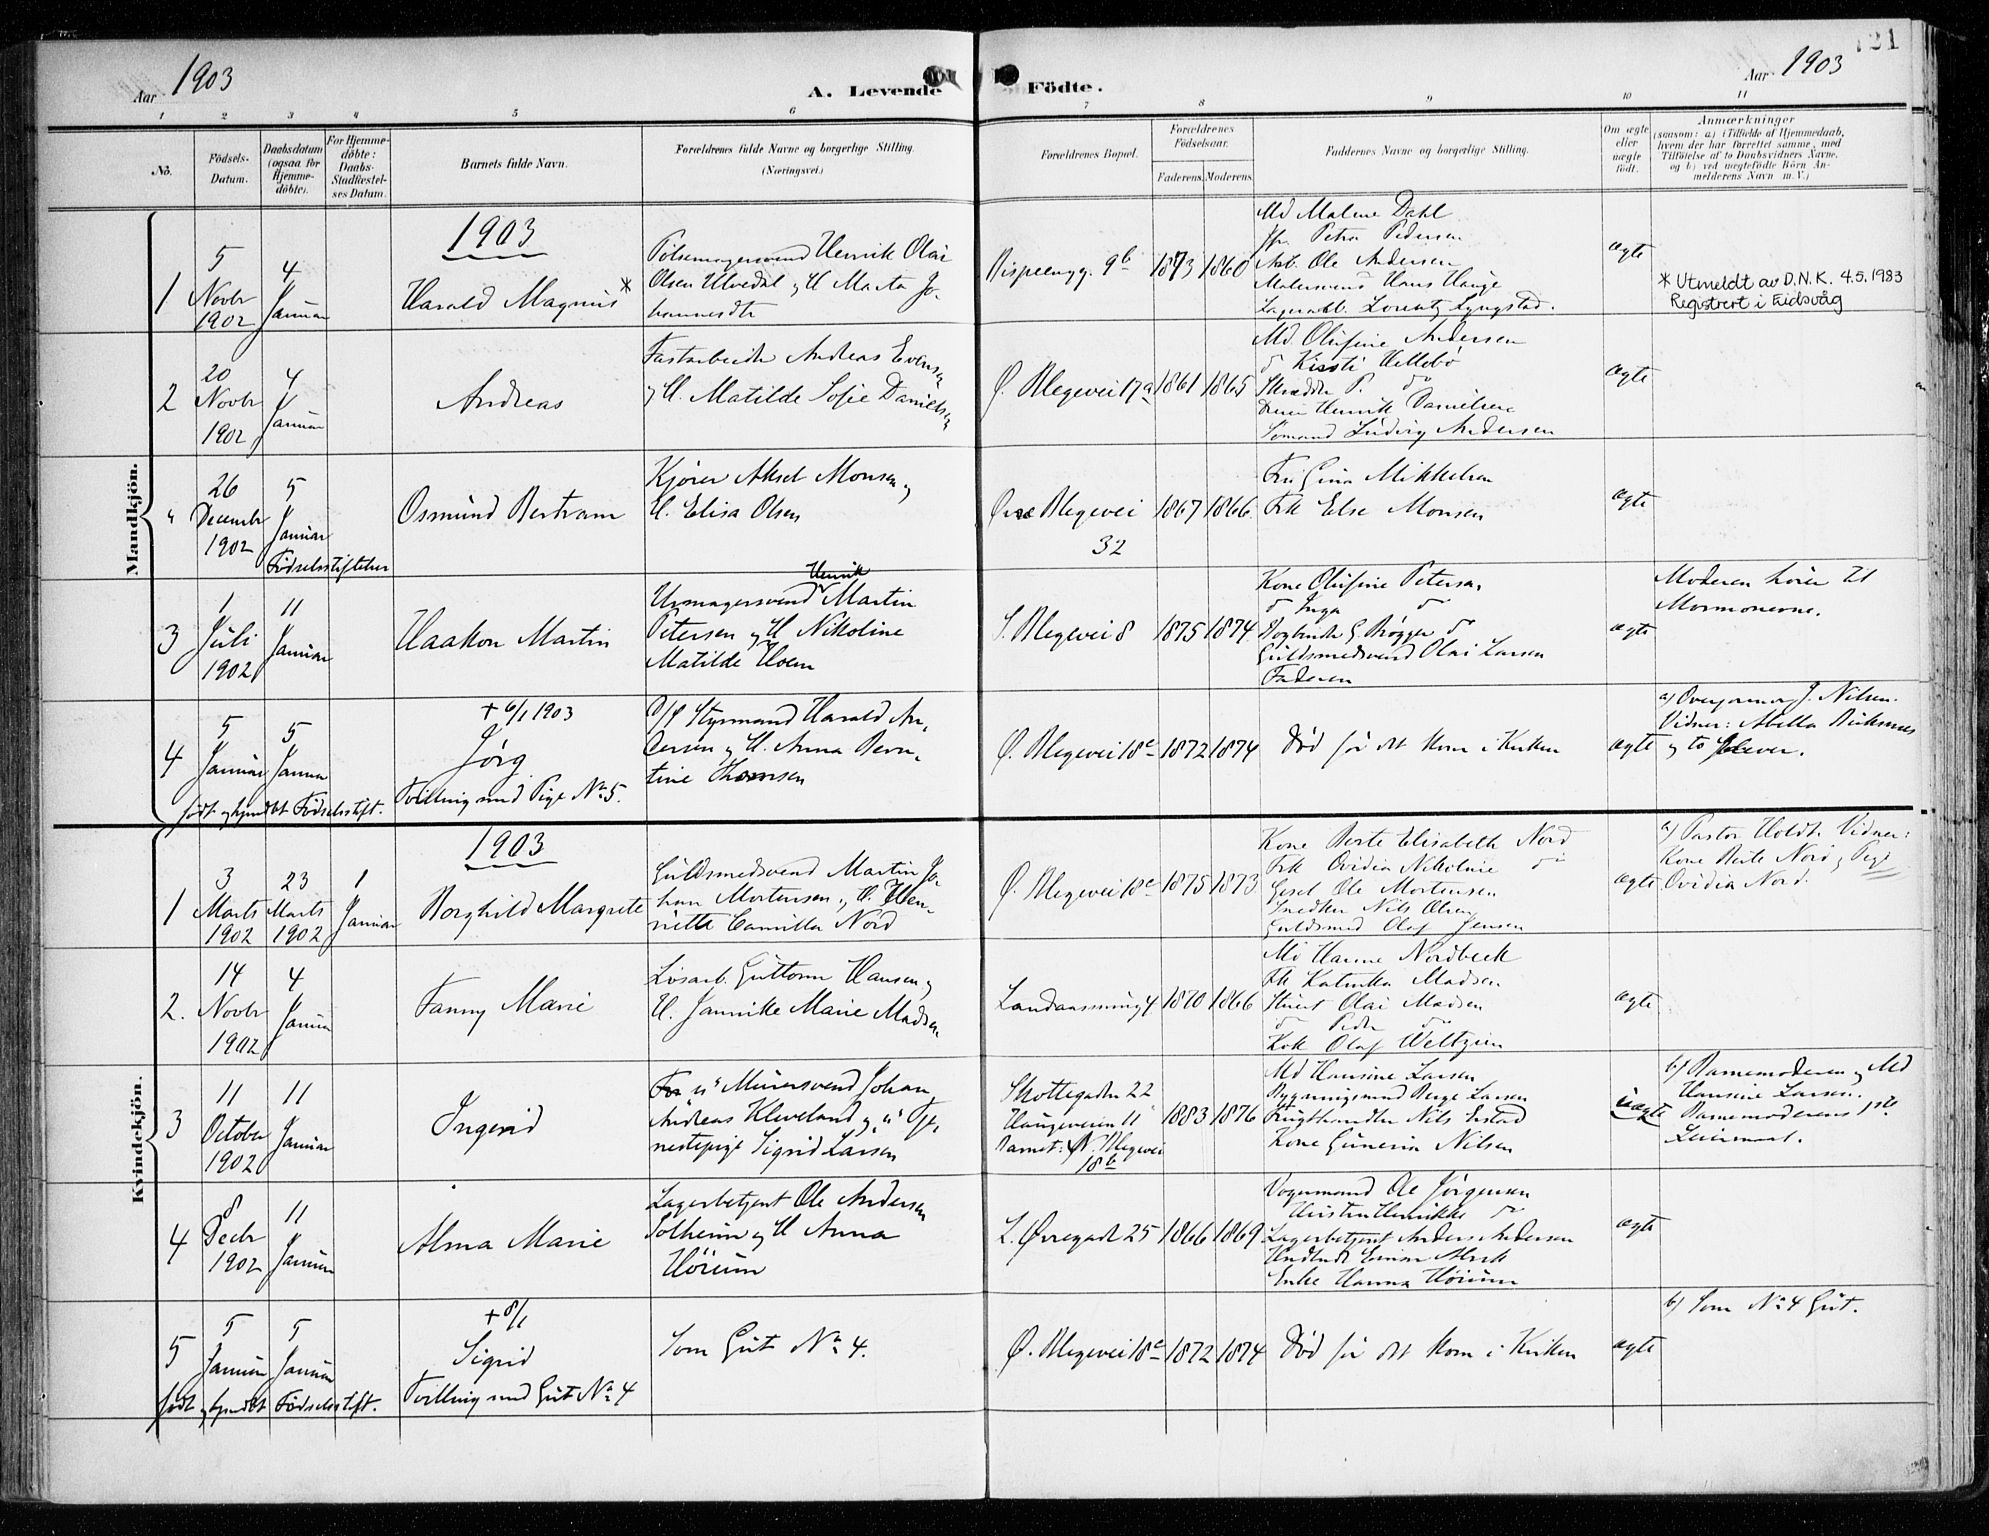 121
Aar 1903
A. Levende
Födte.
Aar 1903
1 2 3 4 5 6 7 8 9 10 11
No.
Födsels-
Datum.
Daabsdatum
(ogsaa for
Hjemme-
döbte).
For Hjemme-
döbte:
Daabs-
Stadfæstel-
ses Datum.
Barnets fulde Navn.
Forældrenes fulde Navne og borgerlige Stilling.
(Næringsvei.)
Forældrenes Bopæl.
Forældrenes
Födselsaar.
Faderens. Moderens.
Faddernes Navne og borgerlige Stilling.
Om ægte
eller
uægte
födt.
Anmærkninger
(saasom: a.) i Tilfælde af Hjemmedaab,
hvem der har forrettet samme, med
Tilföielse af to Daabsvidners Navne,
og b.) ved uægtefödte Börn An-
melderens Navn m. V.)
Mandkjön.
1903
1
5
Novbr
1902
4
Januar
Harald Magnus *
Pølsemagersvend Henrik Olai
Olsen Ulvedal og H. Marta Jo-
hannesdtr
Bispeengg. 9b
1873 1860
Md Malene Dahl
Jfr. Petra Pedersen
Arb. Ole Andersen
Malersvend Hans Hauge
Lagerarb. Lorentz Lyngstad.
ægte
* Utmeldt av D.N.K. 4.5.1983
Registrert i Eidsvåg
2
20
Novbr
1902
4
Januar
Andreas
Fastarbeider Andreas Evensen
og H. Matilde Sofie Danielsen
Ø. Blegevei 17a
1861 1865
Md. Olufine Andersen
do Kirsti Hellebø
Skrædder P. do
Henrik Danielsen
Sømand Ludvig Andersen
ægte
"
26
Decembr
1902
5
Januar
Fødselsstiftelsen
Osmund Bertram
Kjører Aksel Monsen og
H. Elisa Olsen
Øvre Blegevei
32
1867 1866
Fru Gina Mikkelsen
Frk Else Monsen
ægte
3
1
Juli
1902
11
Januar
Haakon Martin
Henrik
Urmagersvend Martin
Petersen og H Nikoline
Matilde Hoem
S. Blegevei 8
1875 1874
Kone Olufine Petersen
do Inga do
Bogtrykk G. Brøgger do
Guldsmedsvend Olai Larsen
Faderen
ægte
Moderen hører til
Mormonerne.
4
5
Januar
5
Januar
født og hjmdbt Fødselsstift.
+ 6/1 1903
Jørg
Tvilling med Pige No 5.
Styrmand Harald An-
dersen og H. Anna Bern-
tine Thomsen
Ø. Blegevei 18c
1872 1874
Død før det kom i Kirken
ægte
a) Overjormor J. Nilsen.
Vidner: Abella
og to Elever.
Kvindekjön.
1903
1
3
Marts
1902
23
Marts
1902
1
Januar
Borghild Margrete
Guldsmedsvend Martin Jo-
han Mortensen og H. Hen-
riette Camilla Nord
Ø. Blegevei 18c
1875 1873
Kone Berte Elisabeth Nord
Frk Ovidia Nikoline do
Gesel Ole Mortensen
Snedker Nils Olsen
Guldsmed Olaf Jensen
ægte
a) Pastor Holdt. Vidner:
Kone Berte Nord og Pige
Ovidia Nord.
2.
14
Novbr
1902
4
Januar
Fanny Marie
Løsarb. Guttorm Hansen og
H. Jannike Marie Madsen
Landaasmuug 4
1870 1866
Md Hanne Nordbeck
Frk Katinka Madsen
Stuert Olai Madsen
do Peder do
Kok Olaf Weltzien
ægte
3
11
October
1902
11
Januar
Ingerid
u Murersvend Johan
Andreas Kleveland og u Tje-
nestepige Sigrid Larsen
Skottegaden 22
Haugeveien 11
Barnet: Ø. Blegevei
18b
1883 1876
Md Hansine Larsen
Bygningsmand Berge Larsen
Frugthandler Nils Eistad
Kone Guneria Nilsen
uægte
b) Barnemoderen og Md
Hansine Larsen.
Barnemoderens 1ste
Leiermaal.
4
8
Decbr
1902
11
Januar
Alma Marie
Lagerbetjent Ole Andersen
Solheim og H Anna
Hørum
L. Øvregade 25
1866 1869
Vognmand Ole Jørgensen
Hustru Henrikke do
Lagerbetjent Anders Andersen
Enke Hanna Hørum
ægte
5
5
Januar
5
Januar
født og hjmdbt Fødselsstift.
+ 8/1
Sigrid
Tvilling med Gut No 4
Som Gut No 4.
Ø. Blegevei 18c
1872 1874
Død før det kom i Kirken
ægte
b) Som No 4 Gut.